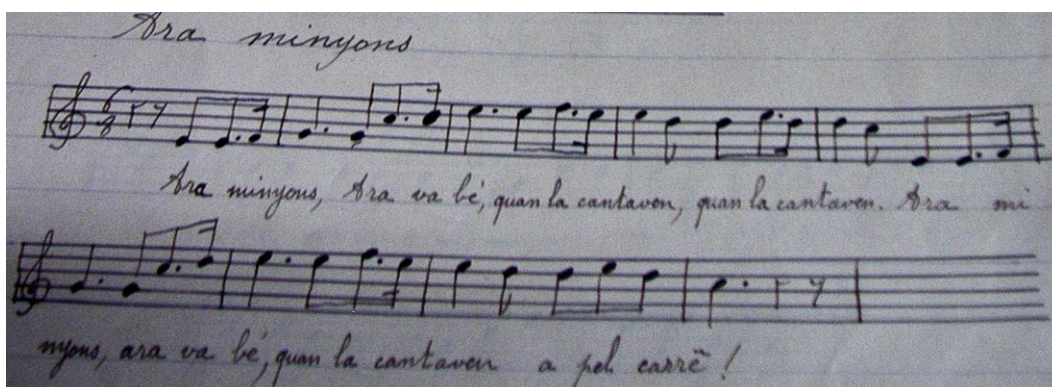 Ara minyons
6
8
Ara minyons, Ara va bé, quan la cantaven, quan la cantaven. Ara mi
nyons, ara va bé, quan la cantaven a pel carrē !